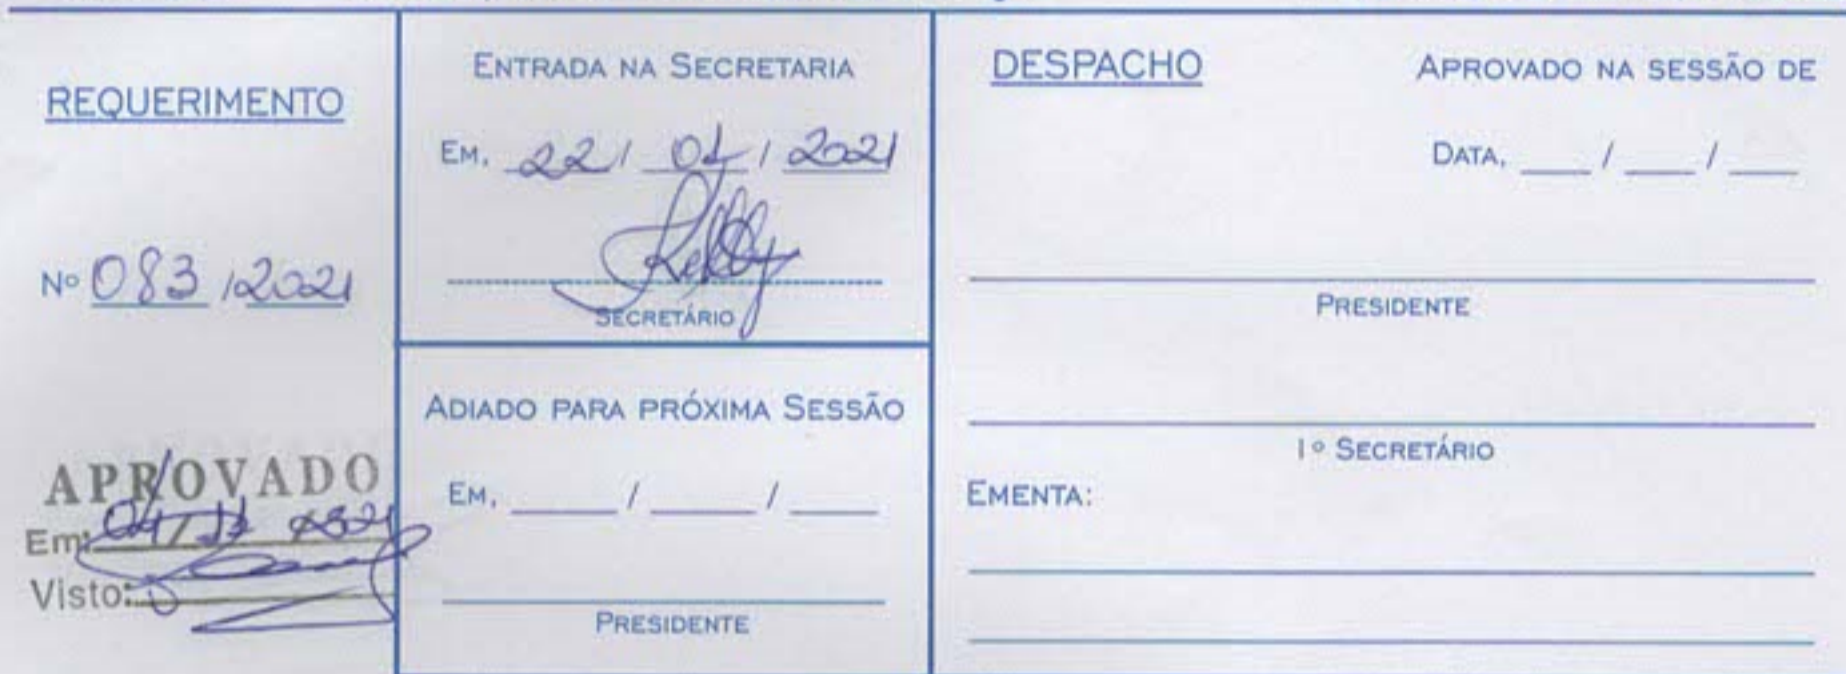 REQUERIMENTO
Nº 083 /2021
APROVADO
Em:
Visto:
ENTRADA NA SECRETARIA
EM, 22/ 01 / 2021
Kelly
SECRETÁRIO
ADIADO PARA PRÓXIMA SESSÃO
EM, ____ / ____ / ____
PRESIDENTE
DESPACHO
APROVADO NA SESSÃO DE
DATA, ____ / ____ / ____
PRESIDENTE
1º SECRETÁRIO
EMENTA: